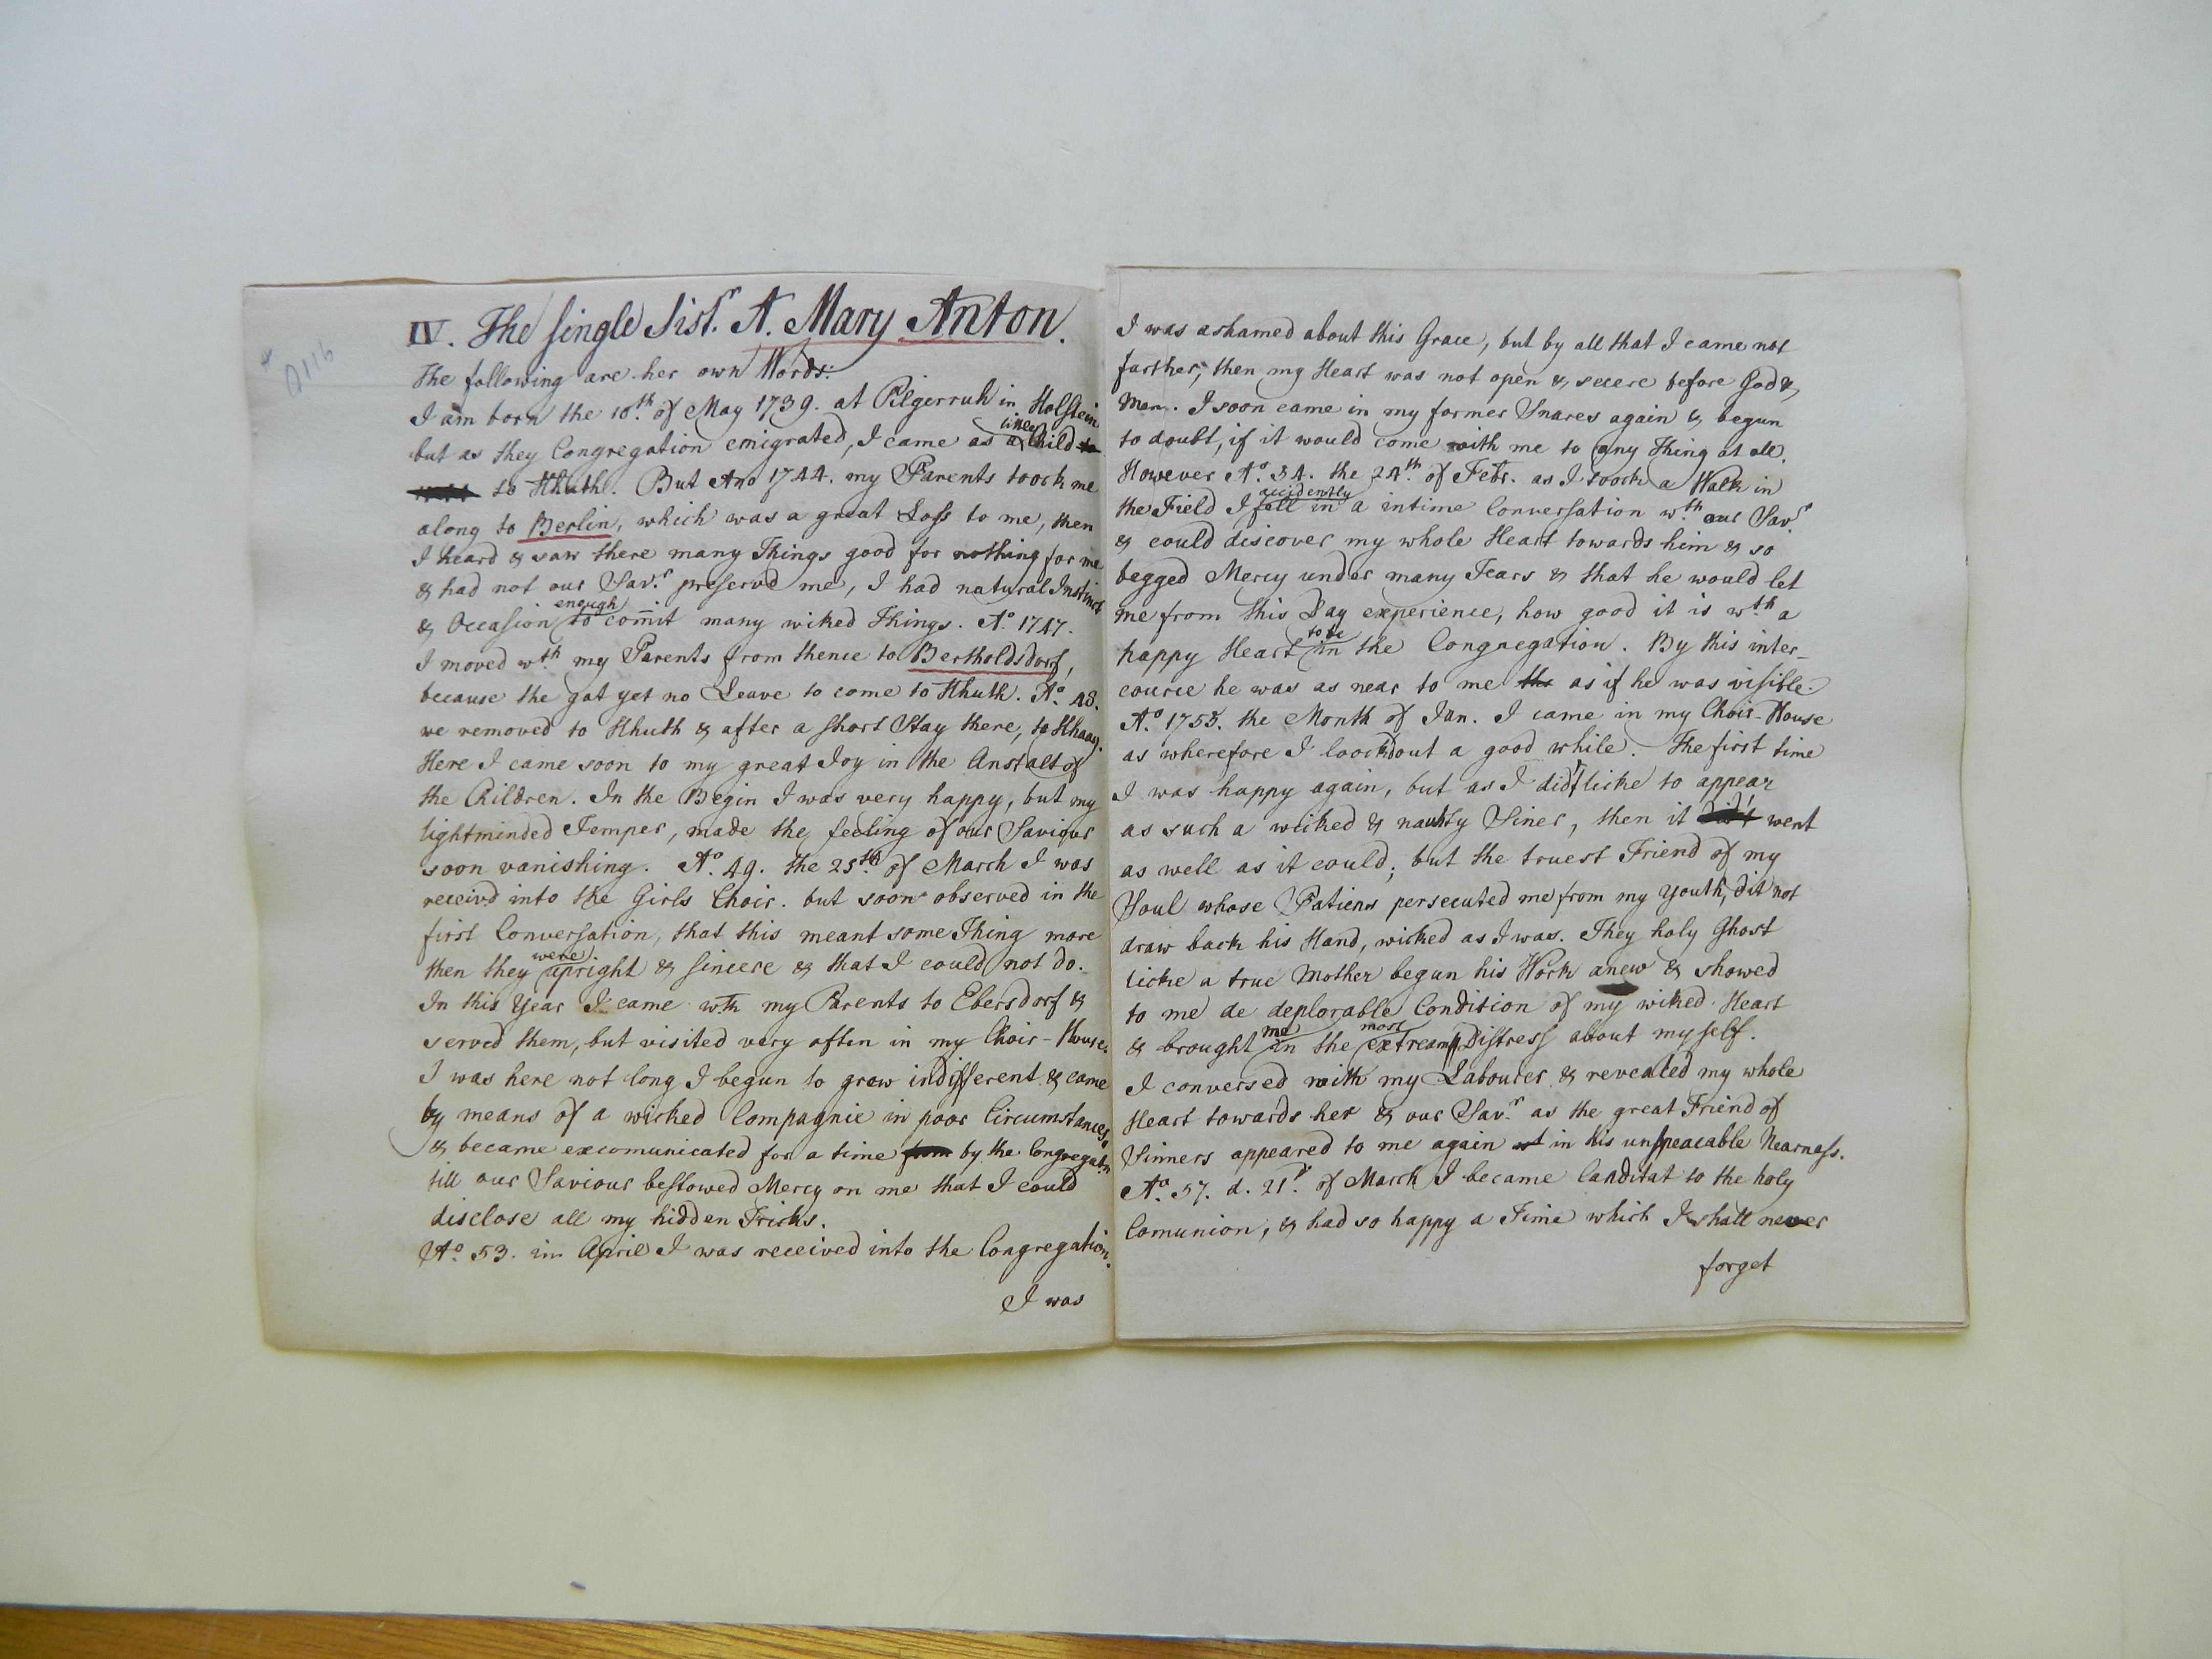 0116
IV. The single Sist.r A. Mary Anton.
The following are her own Words:
I am born the 10.th of May 1739. at Pilgerruh in Holstein
but as they Congregation emigrated, I came as a little Child
to Hhuth. But Ano 1744. my Parents toock me
along to Berlin, which was a great Loss to me, then
I heard & saw there many Things good for nothing for me
& had not our Sav.r preservd me, I had natural Instinct
& Occasion enough to comit many wiked Things. A.o 1747.
I moved w.th my Parents from thence to Bertholdsdorf,
because the got yet no Leave to come to Hhuth. A.o 48.
we removed to Hhuth & after a short Stay there, to Hhaag.
Here I came soon to my great Joy in the Anstalt of
the Children. In the Begin I was very happy, but my
lightminded Temper, made the feeling of our Saviour
soon vanishing. A.o 49. the 25.th of March I was
receivd into the Girls Choir. but soon observed in the
first Conversation, that this meant some Thing more
then they were upright & sincere & that I could not do.
In this Year I came wth my Parents to Ebersdorf &
served them, but visited very often in my Choir-House.
I was here not long I begun to grow indifferent & came
by means of a wicked Compagnie in poor Circumstances
& became excomunicated for a time from by the Congregatn
till our Saviour bestowed Mercy on me that I could
disclose all my hidden Tricks.
A.o 53. in April I was received into the Congregation.
I was
I was ashamed about this Grace, but by all that I came not
farther, then my Heart was not open & secere before God &
Men. I soon came in my former Snares again & begun
to doubt, if it would come with me to any Thing at all.
However A.o 54. the 24.th of Febr. as I toock a Walk in
the Field I fell accidently in a intime Conversation w.th our Sav.r
& could discover my whole Heart towards him & so
begged Mercy under many Tears & that he would let
me from this Day experience, how good it is w.th a
happy Heart to be in the Congregation. By this inter-
cource he was as near to me the as if he was visible.
A.o 1755. the Month of Jan. I came in my Choir-House
as wherefore I loockd out a good while. The first time
I was happy again, but as I did't licke to appear
as such a wicked & nauhty Siner, then it did't went
as well as it could; but the truest Friend of my
Soul whose Patiens persecuted me from my Youth, dit not
draw back his Hand, wicked as I was. They holy Ghost
licke a true Mother begun his Work anew & showed
to me de deplorable Condition of my wiked Heart
& brought me in the most extream Distress about my self.
I conversed with my Labourer & revealed my whole
Heart towards her & our Sav.r as the great Friend of
Sinners appeared to me again in his unspeacable Nearness.
A.o 57. d. 21.t of March I became Canditat to the holy
Comunion, & had so happy a Time which I shall never
forget